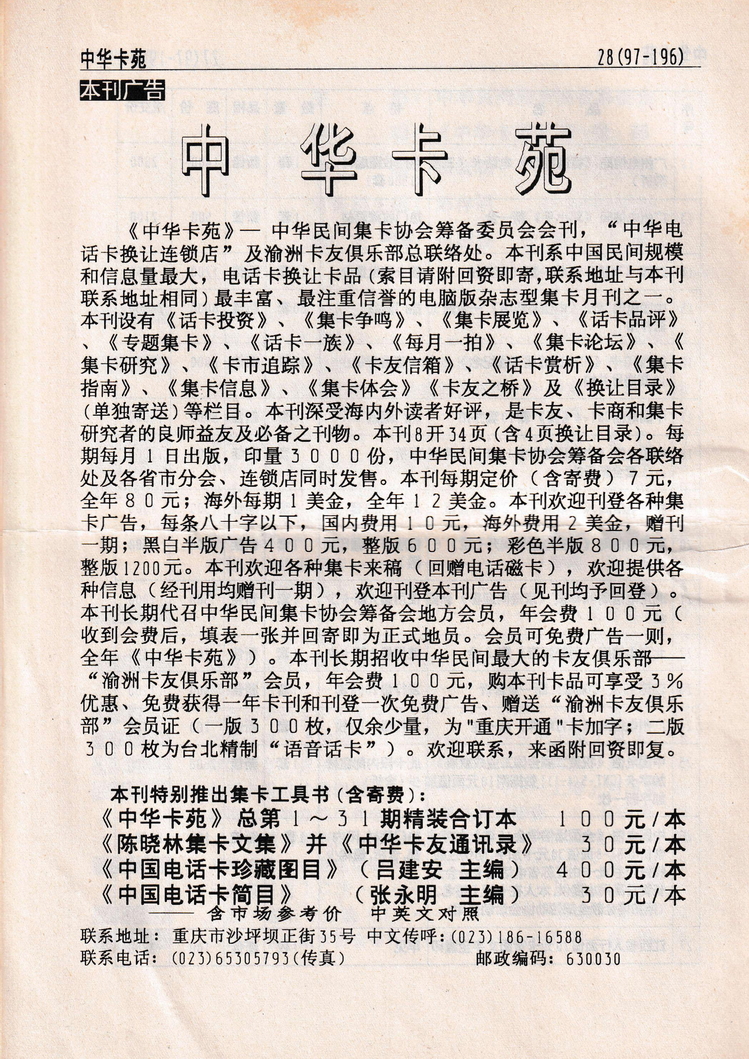 中华卡苑 28(97-196)
本刊广告
中华卡苑
《中华卡苑》— 中华民间集卡协会筹备委员会会刊，“中华电
话卡换让连锁店”及渝洲卡友俱乐部总联络处。本刊系中国民间规模
和信息量最大，电话卡换让卡品(索目请附回资即寄,联系地址与本刊
联系地址相同)最丰富、最注重信誉的电脑版杂志型集卡月刊之一。
本刊设有《话卡投资》、《集卡争鸣》、《集卡展览》、《话卡品评》
、《专题集卡》、《话卡一族》、《每月一拍》、《集卡论坛》、《
集卡研究》、《卡市追踪》、《卡友信箱》、《话卡赏析》、《集卡
指南》、《集卡信息》、《集卡体会》《卡友之桥》及《换让目录》
(单独寄送)等栏目。本刊深受海内外读者好评，是卡友、卡商和集卡
研究者的良师益友及必备之刊物。本刊8开34页(含4页换让目录)。每
期每月1日出版，印量3000份，中华民间集卡协会筹备会各联络
处及各省市分会、连锁店同时发售。本刊每期定价（含寄费）7元，
全年80元；海外每期1美金，全年12美金。本刊欢迎刊登各种集
卡广告，每条八十字以下，国内费用10元，海外费用2美金，赠刊
一期；黑白半版广告400元，整版600元；彩色半版800元，
整版1200元。本刊欢迎各种集卡来稿（回赠电话磁卡），欢迎提供各
种信息（经刊用均赠刊一期），欢迎刊登本刊广告（见刊均予回登）。
本刊长期代召中华民间集卡协会筹备会地方会员，年会费100元（
收到会费后，填表一张并回寄即为正式地员。会员可免费广告一则，
全年《中华卡苑》）。本刊长期招收中华民间最大的卡友俱乐部——
“渝洲卡友俱乐部”会员，年会费100元，购本刊卡品可享受3%
优惠、免费获得一年卡刊和刊登一次免费广告、赠送“渝洲卡友俱乐
部”会员证（一版300枚，仅余少量，为"重庆开通"卡加字；二版
300枚为台北精制“语音话卡”）。欢迎联系，来函附回资即复。
本刊特别推出集卡工具书(含寄费)：
《中华卡苑》总第1～31期精装合订本 100元/本
《陈晓林集卡文集》并《中华卡友通讯录》 30元/本
《中国电话卡珍藏图目》（吕建安 主编） 400元/本
《中国电话卡简目》 （张永明 主编） 30元/本
—— 含市场参考价 中英文对照
联系地址：重庆市沙坪坝正街35号 中文传呼:(023)186-16588
联系电话：(023)65305793(传真) 邮政编码：630030